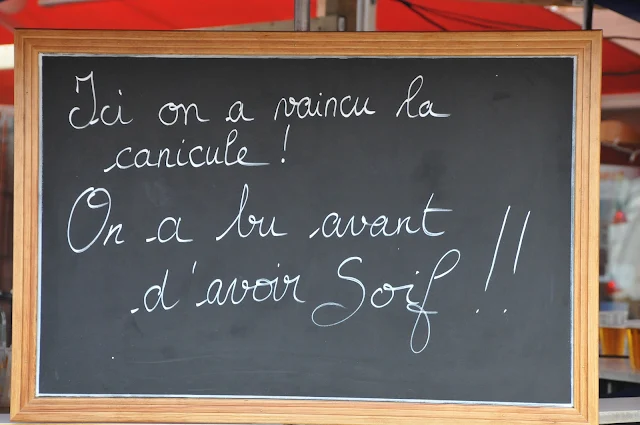 Ici on a vaincu la
canicule !
On a bu avant
d'avoir Soif !!